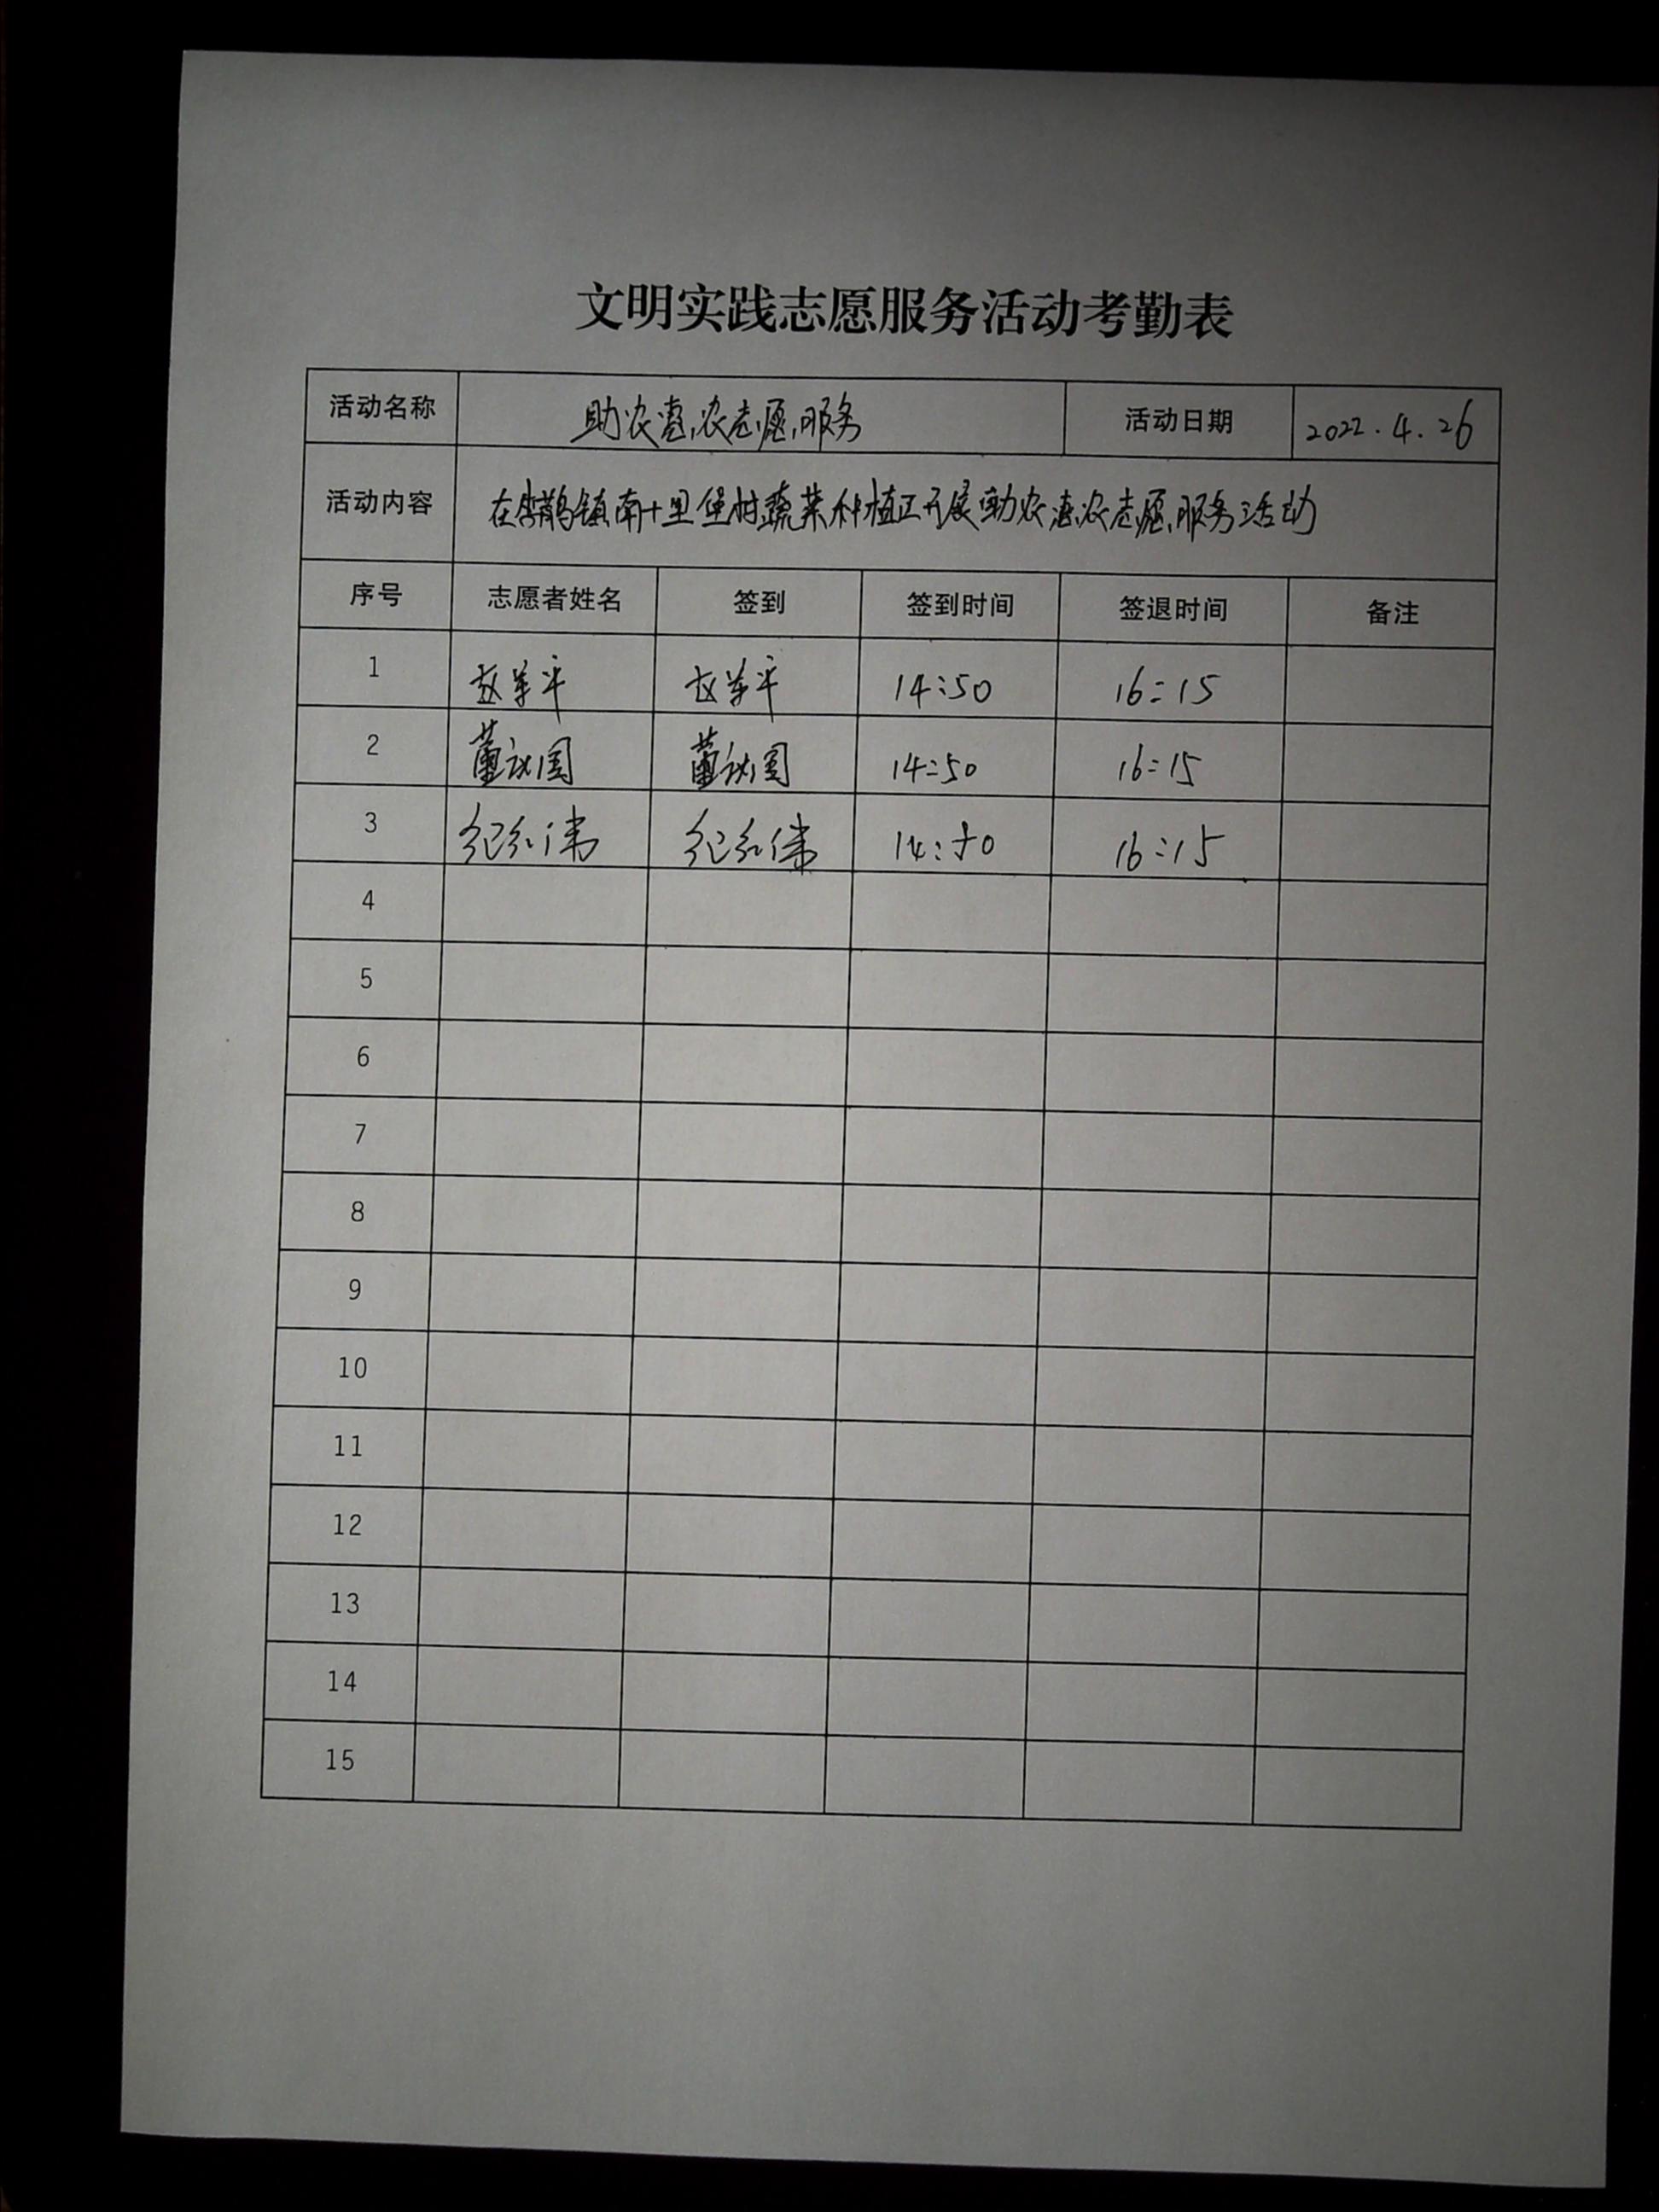 文明实践志愿服务活动考勤表
活动名称 助农惠农志愿服务 活动日期 2022.4.26
活动内容 在李鹊镇南十里堡村蔬菜种植区开展助农惠农志愿服务活动
序号 志愿者姓名 签到 签到时间 签退时间 备注
1 14:50 16:15
2 14:50 16:15
3 纪红伟 纪红伟 14:50 16:15
4
5
6
7
8
9
10
11
12
13
14
15